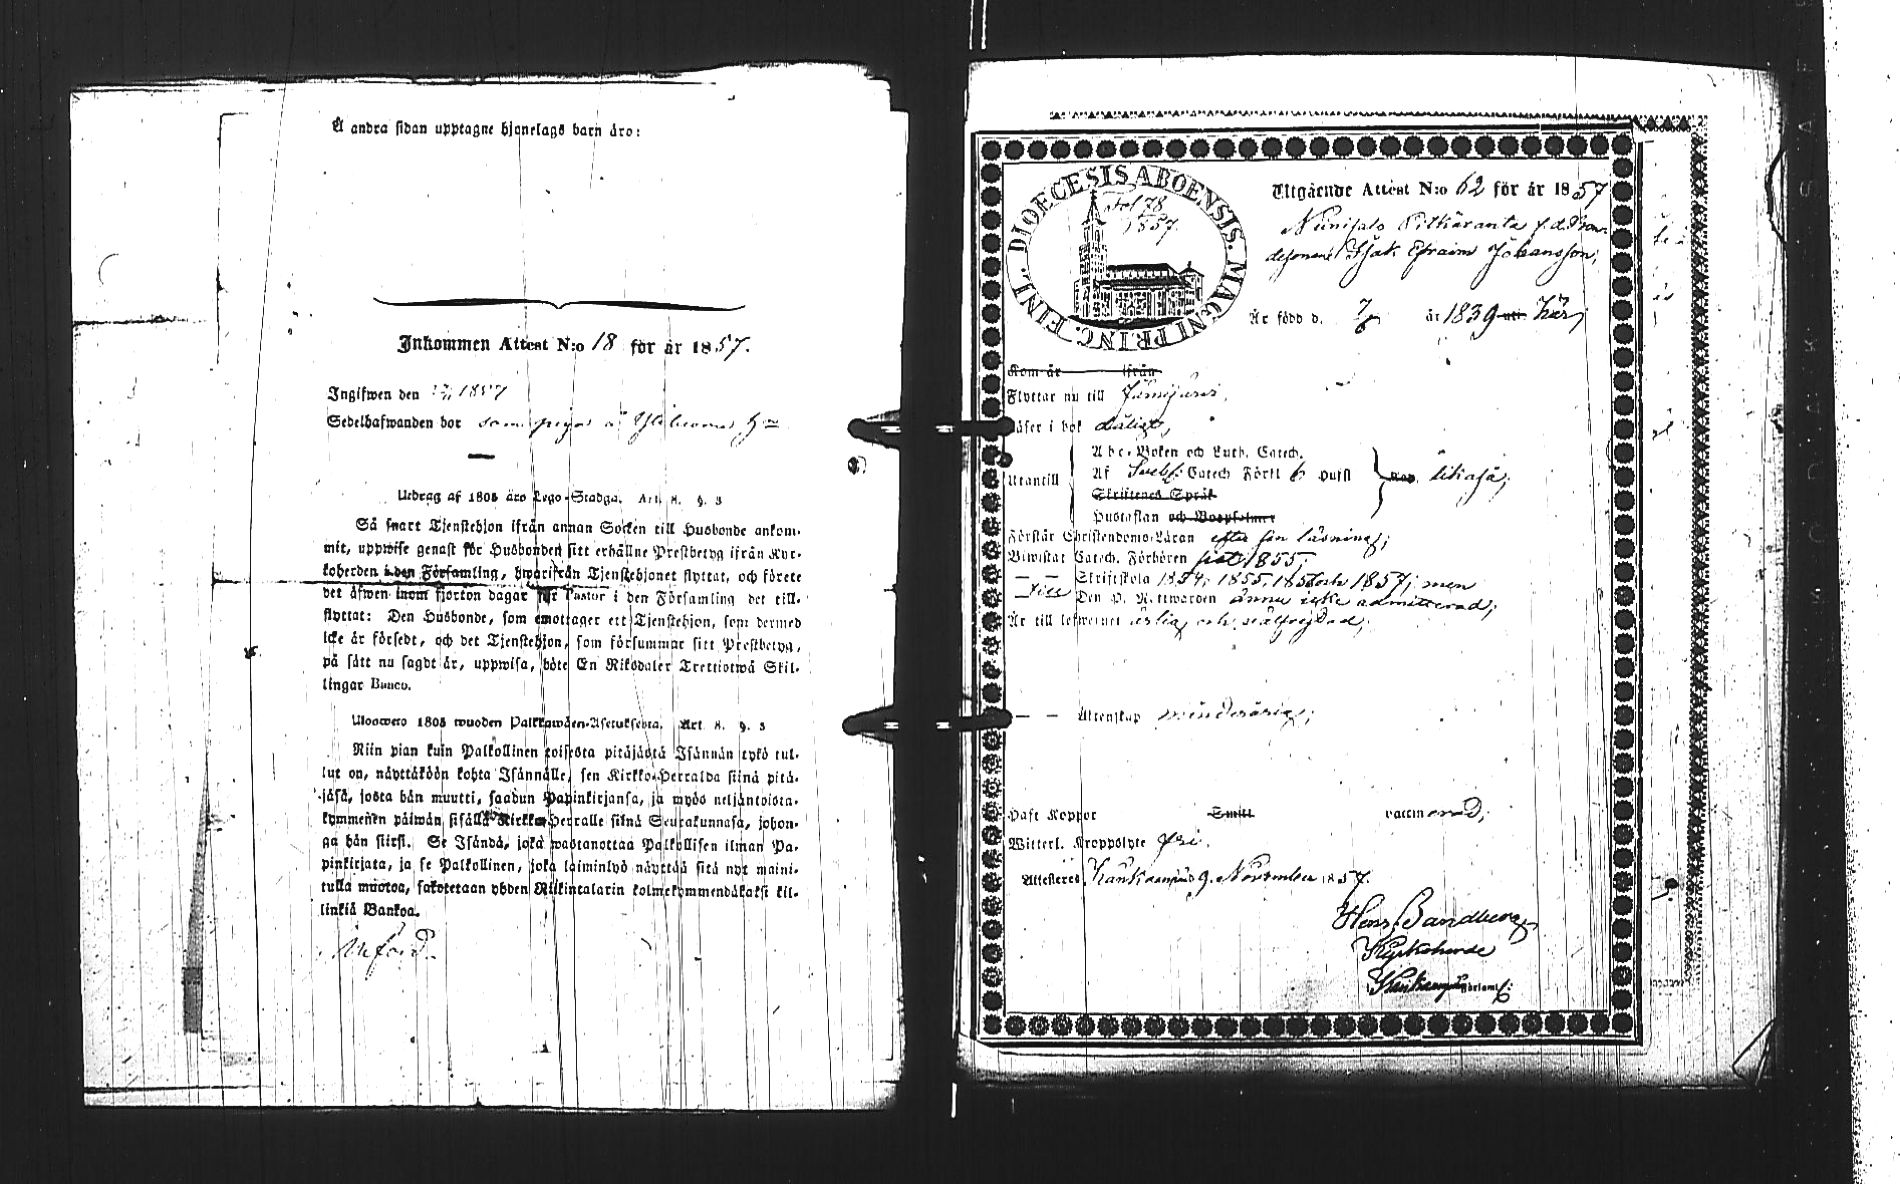 Å andra sidan upptagne hjonelags barn äro:
Inkommen Attest N:o 18 för år 1857.
Ingifwen den 1857
Sedelhafwanden bor som
Utdrag af 1805 års Lego-Stadga. Art. 8. §. 3
Så snart Tjenstehjon ifrån annan Socken till Husbonde ankom-
mit, uppwise genast för Husbonden sitt erhållne Prestbetyg ifrån Kyr-
koherden i den Församling, hwarifrån Tjenstehjonet flyttat, och förete
det äfwen inom fjorton dagar för Pastor i den Församling det till-
flyttat: Den Husbonde, som emottager ett Tjenstehjon, som dermed
icke är försedt, och det Tjenstehjon, som försummar sitt Prestbetyg,
på sätt nu sagdt är, uppwisa, böte En Riksdaler Trettiotwå Skil-
lingar Banco.
Ulosweto 1805 wuoden Palkkawäen-Asetuksesta. Art. 8. §. 3
Niin pian kuin Palkollinen toisesta pitäjästä Isännän tykö tul-
lut on, näyttäköön kohta Isännälle, sen Kirkko-Herralda siinä pitä-
jäsä, josta hän muutti, saadun Papinkirjansa, ja myös neljäntoista-
kymmenen päiwän sisällä Kirkko-Herralle siinä Seurakunnasa, johon-
ga hän siirsi. Se Isändä, joka wastanottaa Palkollisen ilman Pa-
pinkirjata, ja se Palkollinen, joka laiminlyö näyttää sitä nyt maini-
tulla muotoa, sakotetaan yhden Riikintalarin kolmekymmendäkaksi kil-
linkiä Bankoa.
Införd.
DIOECESIS ABOENSIS. MAGNI PRINC. FINL.
Fol 78
1857.
Utgående Attest N:o 62 för år 1857
Niinisalo Pitkäranta f. d. Bon-
desonen Isak Efraim Johansson,
Är född d. år 1839 här,
Kom år ifrån
Flyttar nu till Jämijärvi,
Läser i bok dåligt,
Abc-Boken och Luth. Catech.
Utantill Af Sveb: Catech Förkl 6 Hufst likaså;
Skriftenes Språk
Hustaflan och Botpsalmer
Förstår Christendoms-Läran efter sin läsning;
Biwistat Catech. Förhören sist 1855,
— — Skriftskola 1854, 1855, 1856 och 1857; men
Till Den H. Nattwarden ännu icke admitterad;
Är till lefwernet ärlig och välfrejdad,
— — Äktenskap minderårig;
Haft Koppor Smitt vaccinerad;
Witterl. Kroppslyte fri.
Attesteras, Kankaanpää 9. November 1857.
Hens. Sandberg
Kyrkoherde
Kankaanpää Församl: